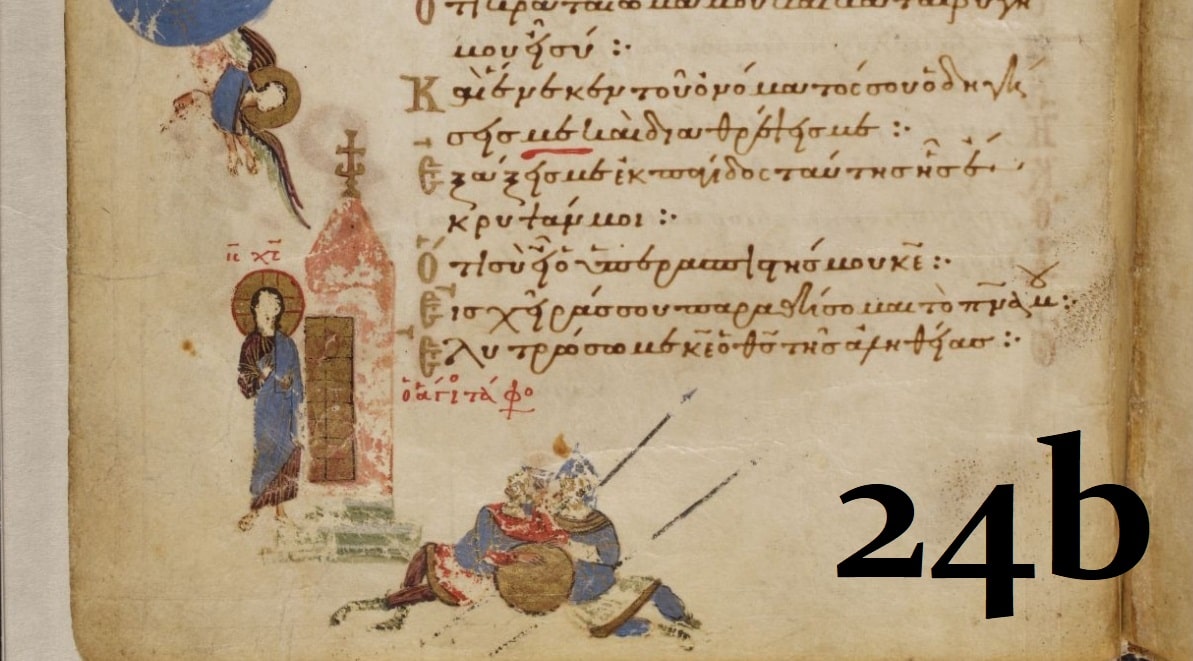 Ὅτι κραταίωμα μου καὶ καταφυγή
μου εἶ σύ :·
Καὶ ἕνεκεν τοῦ ὀνόματός σου ὁδηγή
σεις με καὶ διαθρέψεις με :·
Ἐξάξεις με ἐκ παγίδος ταύτης ἧς ἔ
κρυψάν μοι :·
Ὅτι σὺ εἶ ὁ ὑπερασπιστής μου κ̅ε̅ :·
Εἰς χεῖράς σου παραθήσομαι τὸ π̅ν̅α̅ μου :·
Ἐλυτρώσω με κ̅ε̅ ὁ θ̅ς̅ τῆς ἀληθείας :·
ι̅ς̅ χ̅ς̅
ὁ ἅγιο τάφο
24b